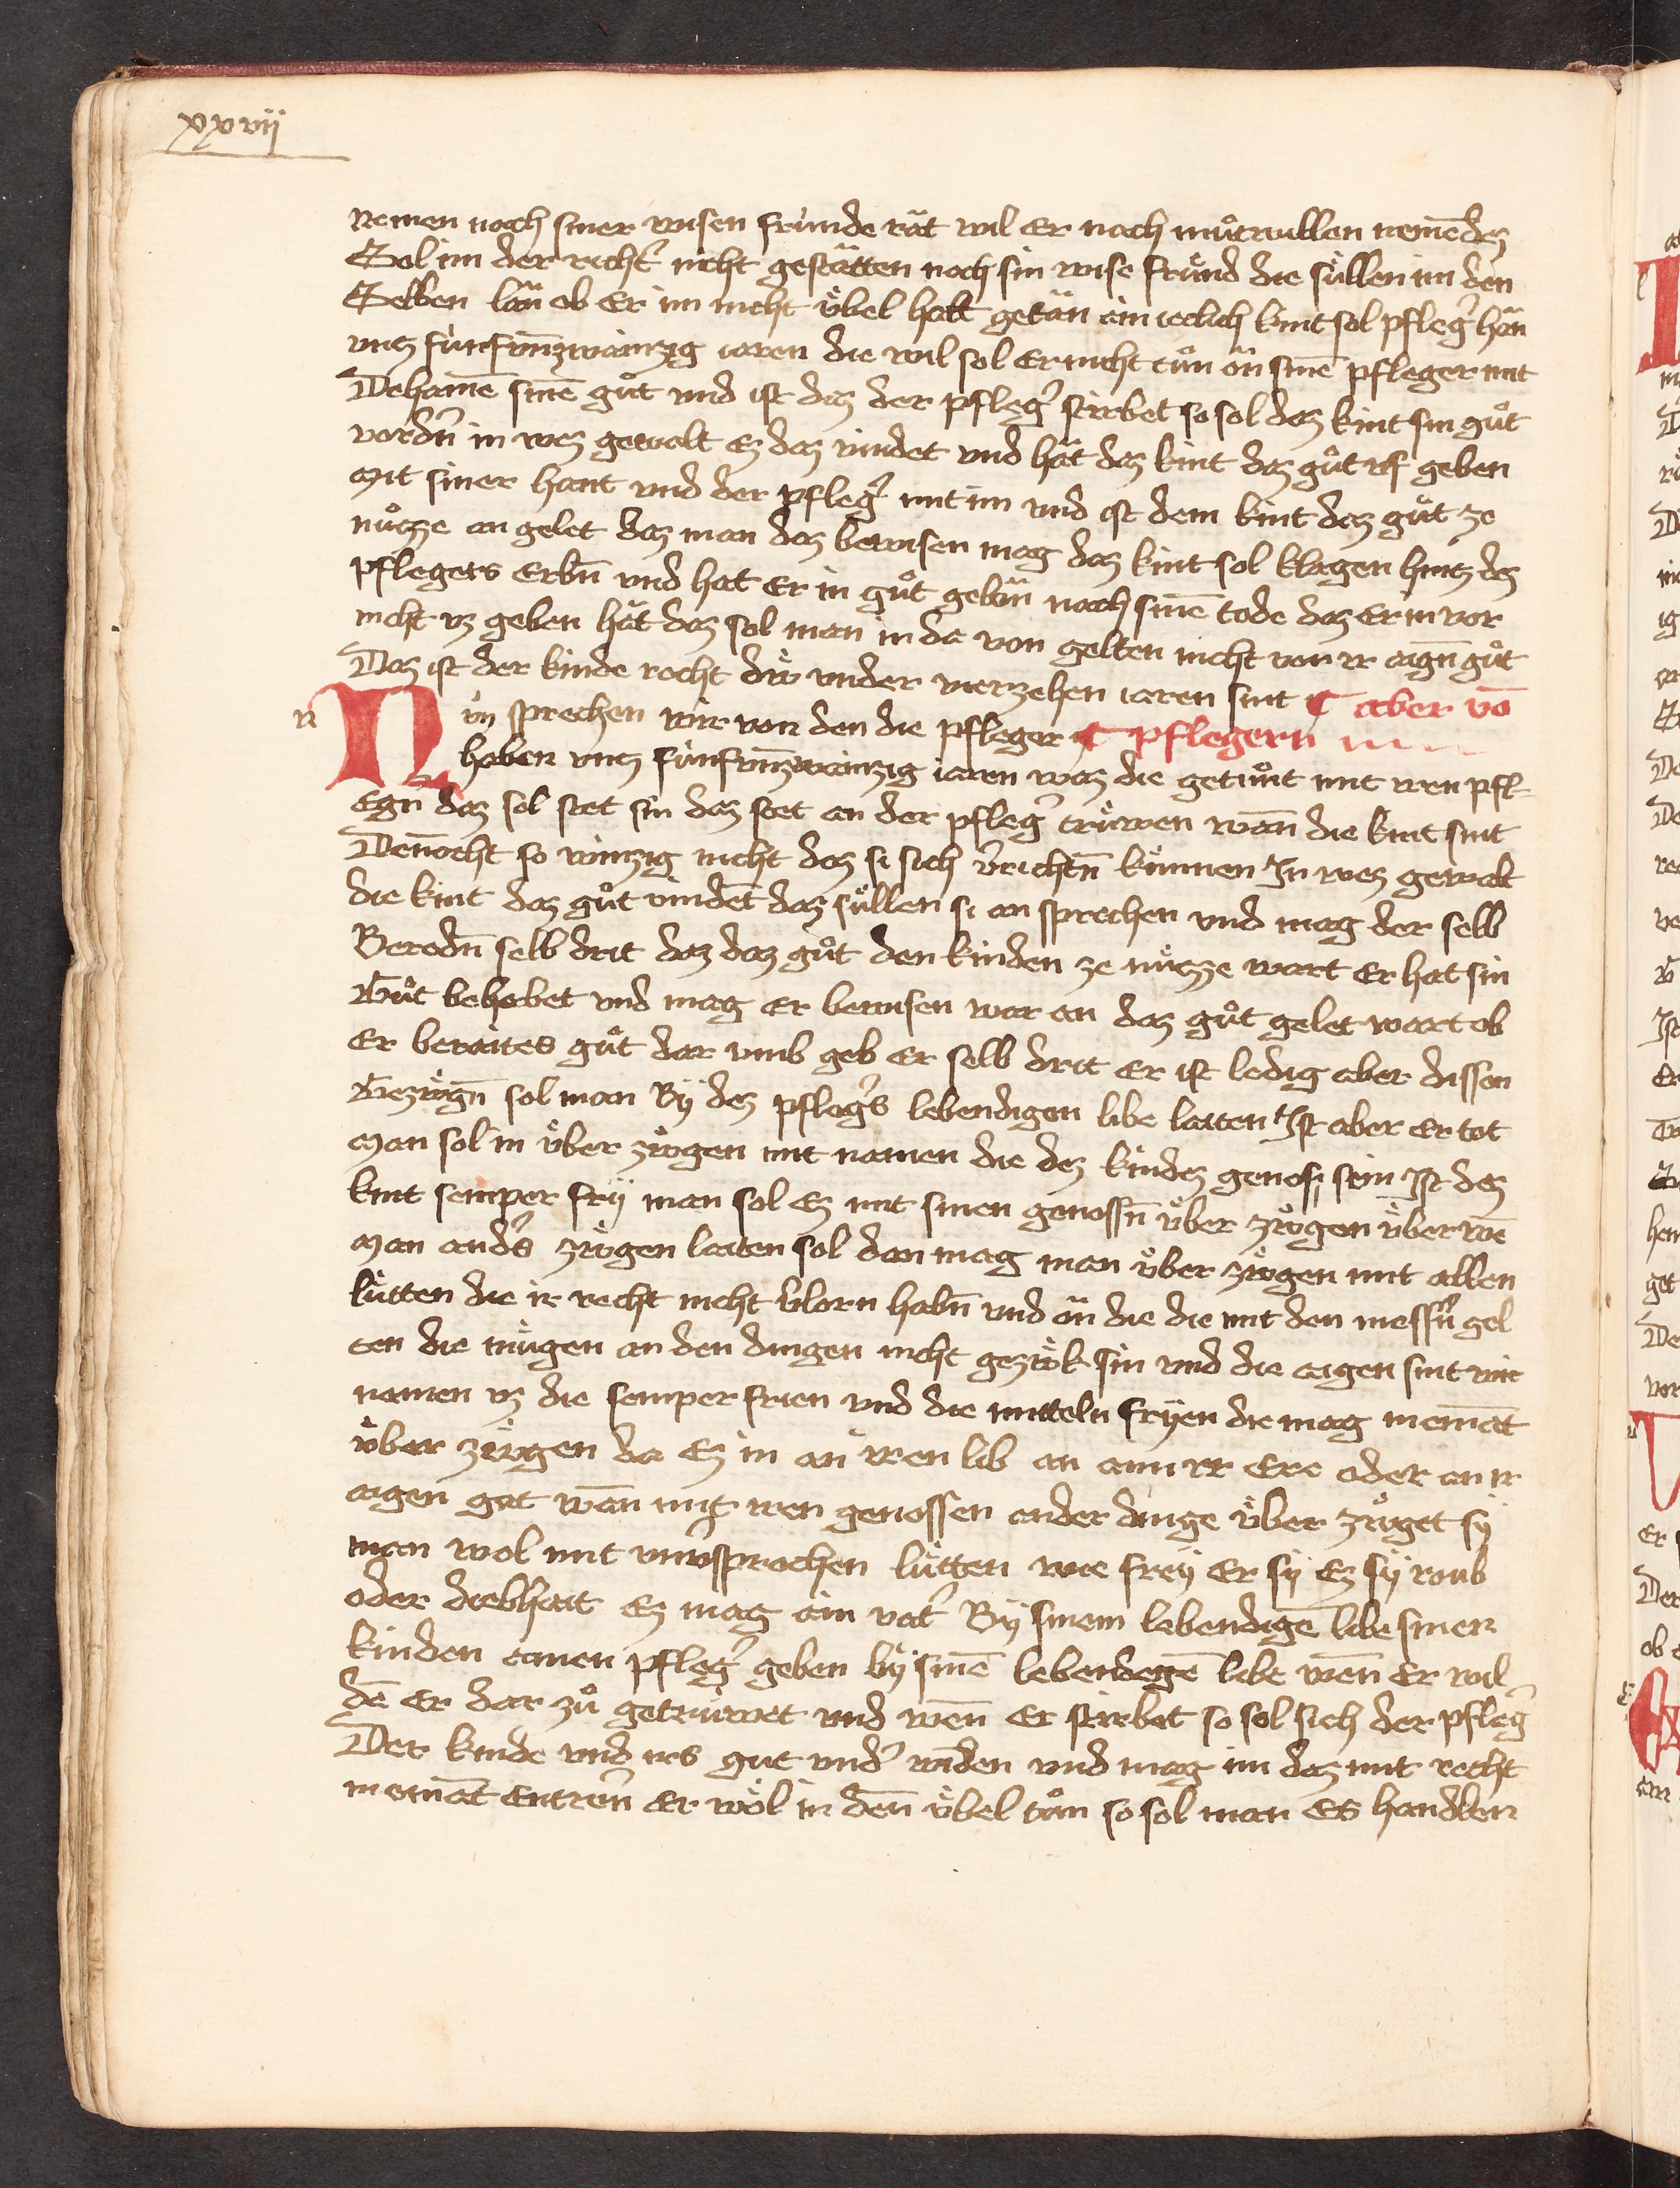 xxvij
nemen nach siner wisen fründe rät wil er nach můtwillen nemē dez
Sol im der richt͛ nicht gestätten noch sin wise fründ die süllen im den
Selben län ob er im nicht übel hatt getän ain ieclich kint sol pfleg͛ hän
vntz fünfvn̄zwainzig iaren die wil sol er nicht tůn ön sinē pfleger mit
Dehainē sinē gůt vnd ist daz der pfleg͛ stirbet so sol daz kint sin gůt
vordn̄ in wez gewalt ez daz vindet vnd hät daz kint daz gůt vf geben
Mit siner hant vnd der pfleg͛ mit im vnd ist dem kint daz gůt ze
nützze an gelet daz man daz bewisen mag daz kint sol klagen hintz dez
pflegers erbn̄ vnd hat er in gůt gebn̄ nach sinē tode daz er in vor
nicht vz geben hät daz sol man in da von gelten nicht von ir aign̄ gůt
Daz ist der kinde recht dü vnder vierzehen iaren sint ¶ aber vō
n Nv̈ sprechen wir von den die pfleger ¶ pflegern
haben vntz fünfvn̄zwainzig iaren waz die getůnt mit iren pfl-
egn daz sol stet sin daz stet an der pfleg͛ trüwen wān die kint sint
Den̄ocht so winzig nicht daz si sich v͛richtn̄ künnen In wez gewalt
die kint daz gůt vindēt daz süllen si an sprechen vnd mag der selb
Beredn̄ selb drit daz daz gůt den kinden ze nützze wart er hat sin
Gůt behebet vnd mag er bewisen war an daz gůt gelet wart ob
er beraites gůt dar vmb geb er selb drit er ist ledig aber dissen
Gezügn̄ sol man Bÿ dez pfleg͛s lebendigen libe laiten Ist aber er tot
Man sol in über zügen mit namen die dez kindez genoss sein Ist dez
kint semper frÿ man sol ez mit sinen genossn̄ über zügen über wē
Man and͛s zügen laiten sol dan mag man über zügen mit allen
lütten die ir recht nicht v͛lorn habn̄ vnd ön die die mit den messn̄ gel
ten die mügen an den dingen nicht gezük sin vnd die aigen sint wir
namen vz die semper frien vnd die mitteln frÿen die mag niemāt
über zügen da ez in an iren lib an ainn ir ere oder an ir
aigen gat wān mit iren genossen ander dinge über züget sÿ
man wol mit vnv͛sprochen lütten wie frÿ er sÿ ez sÿ roub
oder diebhait Ez mag ain vat͛ Bÿ sinem lebendigē libe siner
kinden ainen pfleg͛ geben bÿ sinē lebendegē libe wēn er wil
dē er dar zů getrüwet vnd wēn er stirbet so sol sich der pfleg͛
Der kinde vnd irs gut vnd͛ winden vnd mag im daz mit recht
niemāt entren̄ er wöl in den̄ übel tůn so sol man es handlen